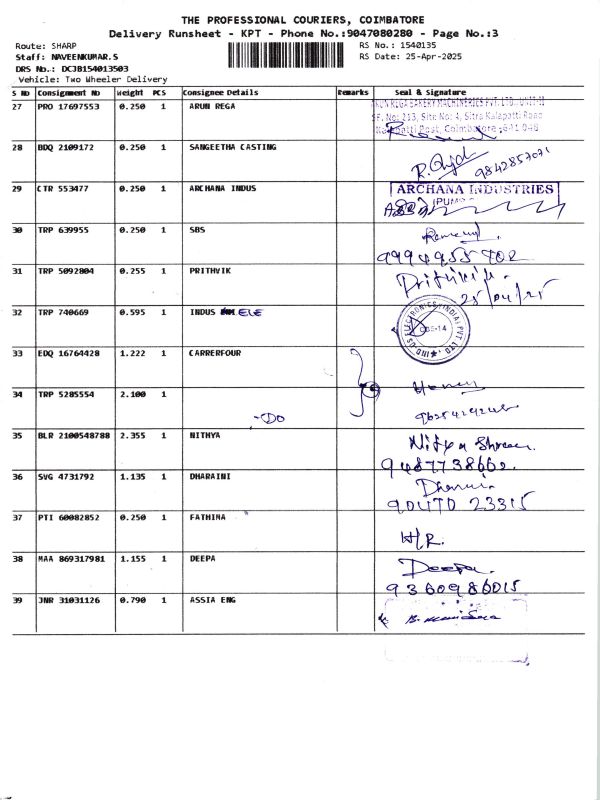 THE PROFESSIONAL COURIERS, COIMBATORE
Delivery Runsheet - KPT - Phone No.:9047080280 - Page No.:3
Route: SHARP
RS No.: 1540135
Staff: NAVEENKUMAR.S
RS Date: 25-Apr-2025
DRS No.: DCJB154013503
Vehicle: Two Wheeler Delivery
S No Consignment No Weight PCS Consignee Details Remarks Seal & Signature
27 PRO 17697553 0.250 1 ARUN REGA
ARUN REGA BAKERY MACHINERIES PVT. LTD., UNIT-II
SF. No: 213, Site No: 4, Sitra Kalapatti Road
Kalapatti Post, Coimbatore - 641 048
28 BDQ 2109172 0.250 1 SANGEETHA CASTING
9842857071
29 CTR 553477 0.250 1 ARCHANA INDUS
ARCHANA INDUSTRIES
30 TRP 639955 0.250 1 SBS
9994955702
31 TRP 5092804 0.255 1 PRITHVIK
Prithivik.
25/04/25
32 TRP 740669 0.595 1 INDUS ELE
INDUS ELECTRONICS (INDIA) PVT LTD
CBS-14
33 EDQ 16764428 1.222 1 CARRERFOUR
34 TRP 5285554 2.100 1
-DO
35 BLR 2100548788 2.355 1 NITHYA
Nithya Shree
9487738662.
36 SVG 4731792 1.135 1 DHARAINI
Dharani
37 PTI 60082852 0.250 1 FATHIMA
H/R.
38 MAA 869317981 1.155 1 DEEPA
Deepa.
9360986015
39 JNR 31031126 0.790 1 ASSIA ENG